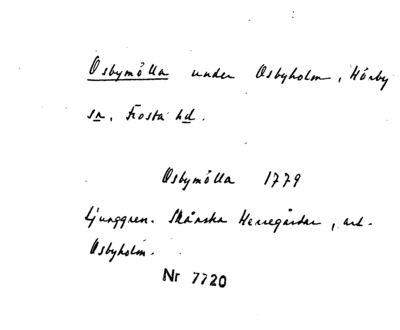 Osbymölla under Osbyholm, Hörby
sn, Frosta hd.
Osbymölla 1779
Ljunggren. Skånska Herregårdar, art.
Osbyholm.
Nr 7720